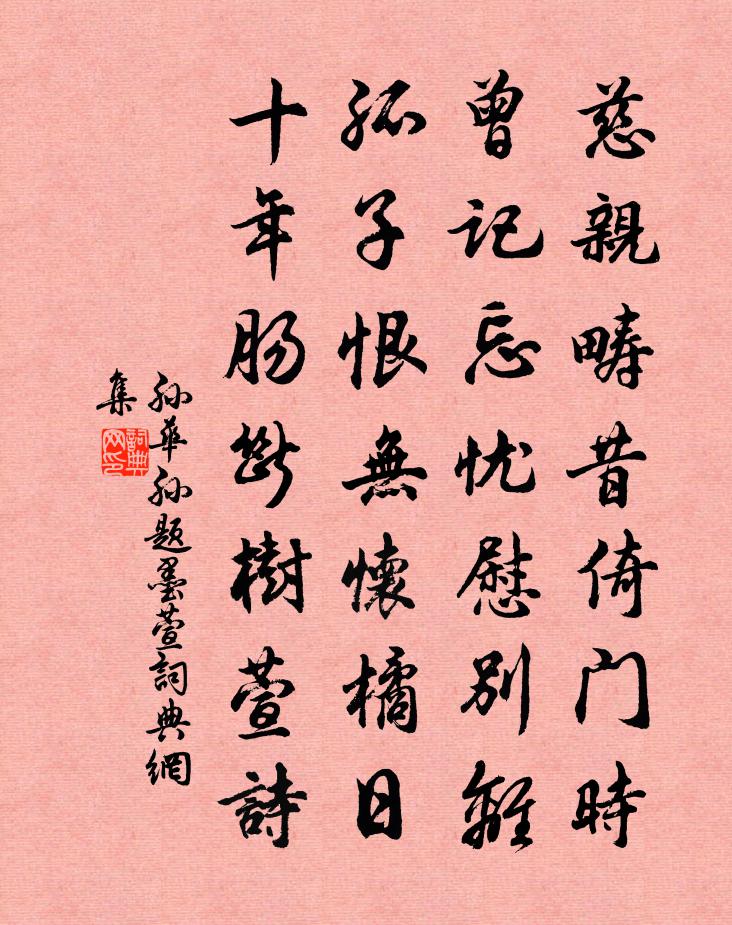 慈親疇昔倚门時
曾记忘忧慰别離
孤子恨無懷橘日
十年肠斷樹萱詩
孙華孙題墨萱詞典網
集
詞典网印